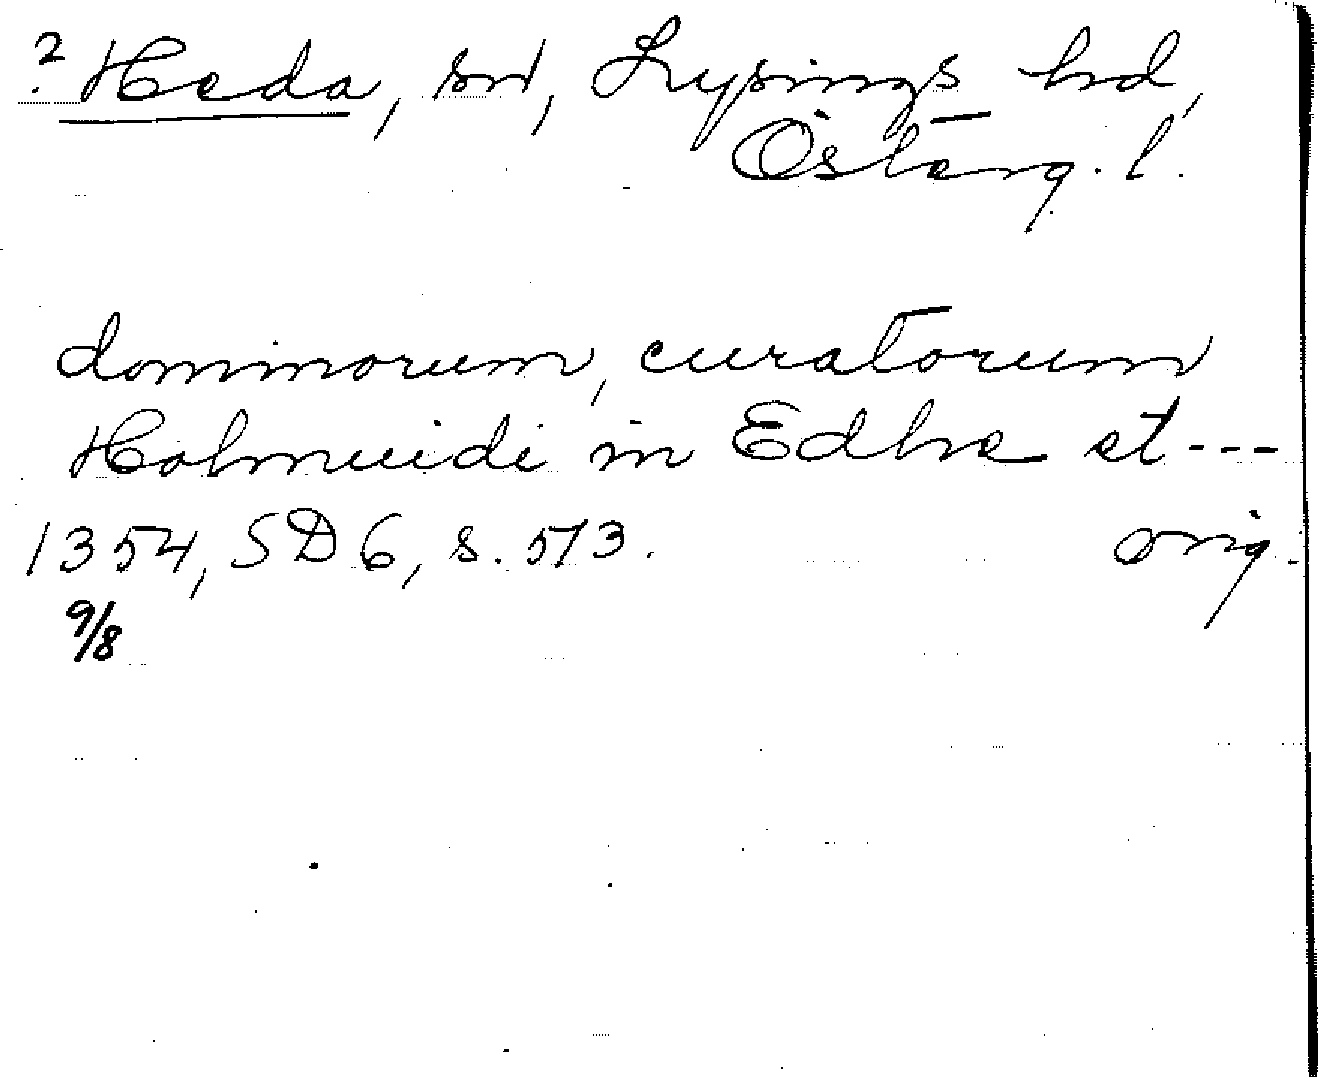 ? Heda, sn, Lysings hd,
Österg. l.
dominorum, curatorum
Holmuidi in Edhe et ---
1354, SD 6, s. 573. orig.
9/8